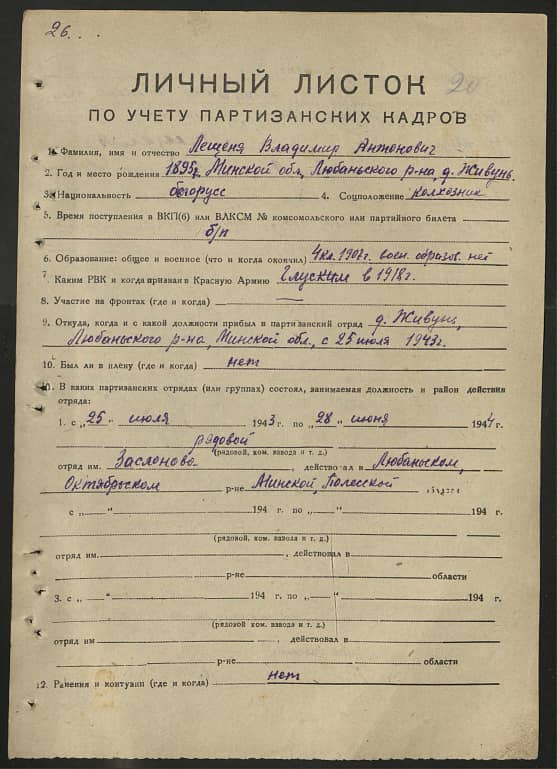 26.
20
ЛИЧНЫЙ ЛИСТОК
ПО УЧЕТУ ПАРТИЗАНСКИХ КАДРОВ
1. Фамилия, имя и отчество Лешеня Владимир Антонович
2. Год и место рождения 1895г. Минской обл., Любаньского р-на, д. Живунь.
3. Национальность белорусс 4. Соцположение колхозник
5. Время поступления в ВКП(б) или ВЛКСМ № комсомольского или партийного билета
б/п
6. Образование: общее и военное (что и когда окончил) 4 кл. 1907г. воен. образов. нет
7. Каким РВК и когда призван в Красную Армию Глуским в 1918г.
8. Участие на фронтах (где и когда) —
9. Откуда, когда и с какой должности прибыл в партизанский отряд д. Живунь,
Любаньского р-на, Минской обл., с 25 июля 1943г.
10. Был ли в плену (где и когда) нет
11. В каких партизанских отрядах (или группах) состоял, занимаемая должность и район действия
отряда:
1. с „25" июля 1943 г. по „28" июня 1944
рядовой
(рядовой, ком. взвода и т. д.)
отряд им. Заслонова, действовал в Любаньском,
Октябрьском р-не Минской, Полесской области
с „ —" 194 г. по „—" 194 г.
(рядовой, ком. взвода и т. д.)
отряд им. , действовал в
р-не области
3. с „ —" 194 г. по „—" 194 г.
(рядовой ком. взвода и т. д.)
отряд им , действовал в
р-не области
12. Ранения и контузии (где и когда) нет